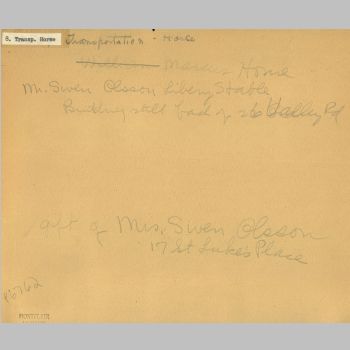 6. Transp. Horse
Transportation - Horse
William Marcus Horne
Mr. Swen Olsson Livery Stable
Building still back of 26 Valley Rd
gft of Mrs. Swen Olsson
17 St Luke's Place
MONTCLAIR